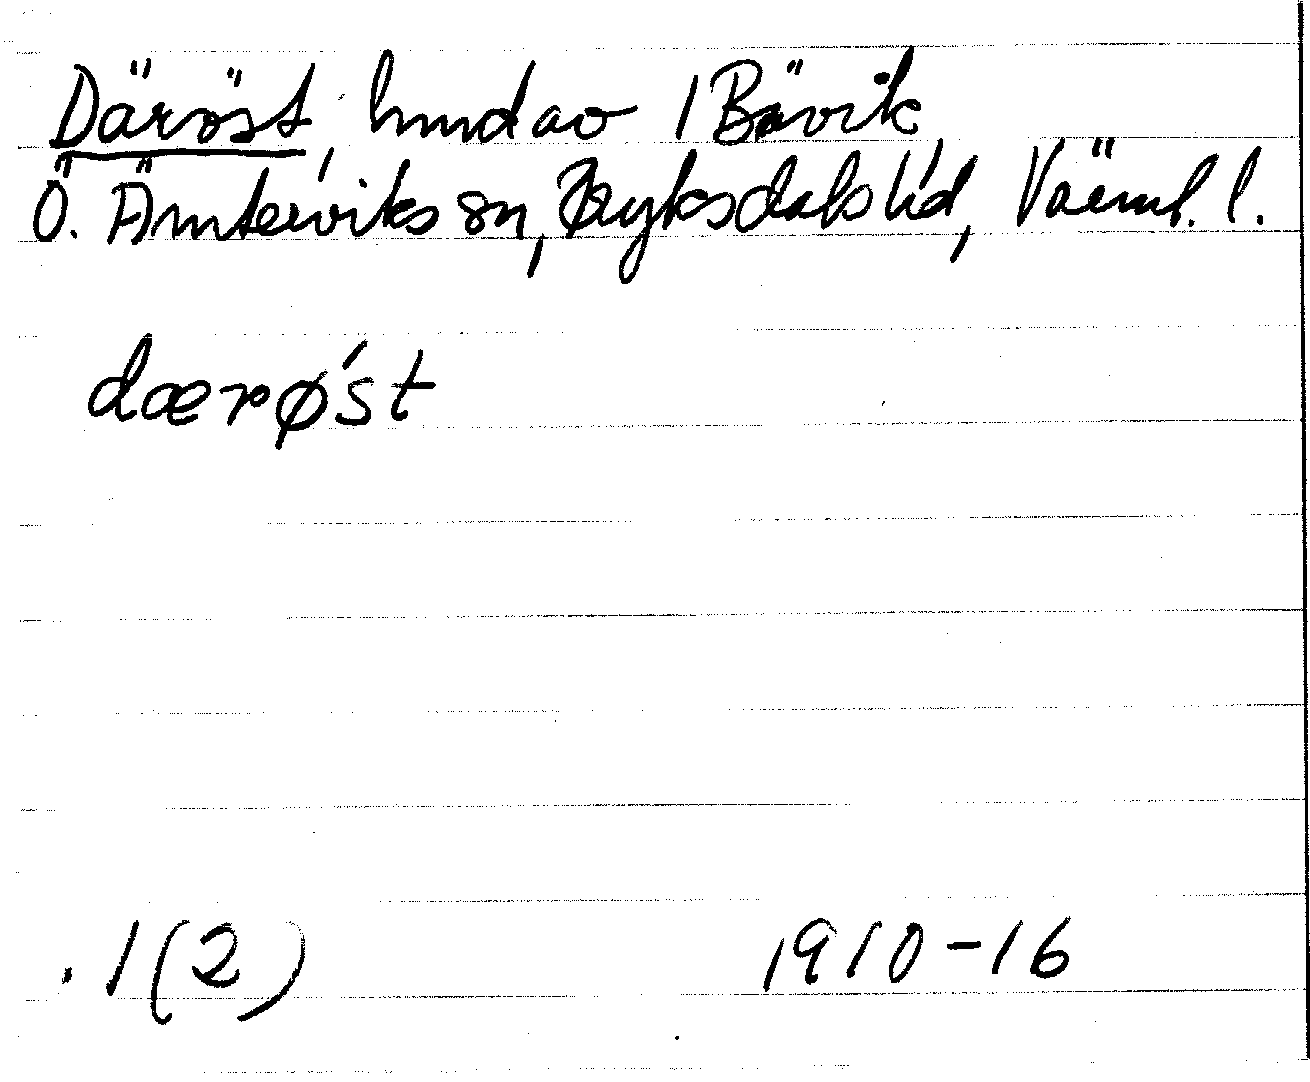 Däröst, hmd av 1 Bävik
Ö. Ämterviks sn, Fryksdals hd, Värml. l.
dærø´st
1(2) 1910-16